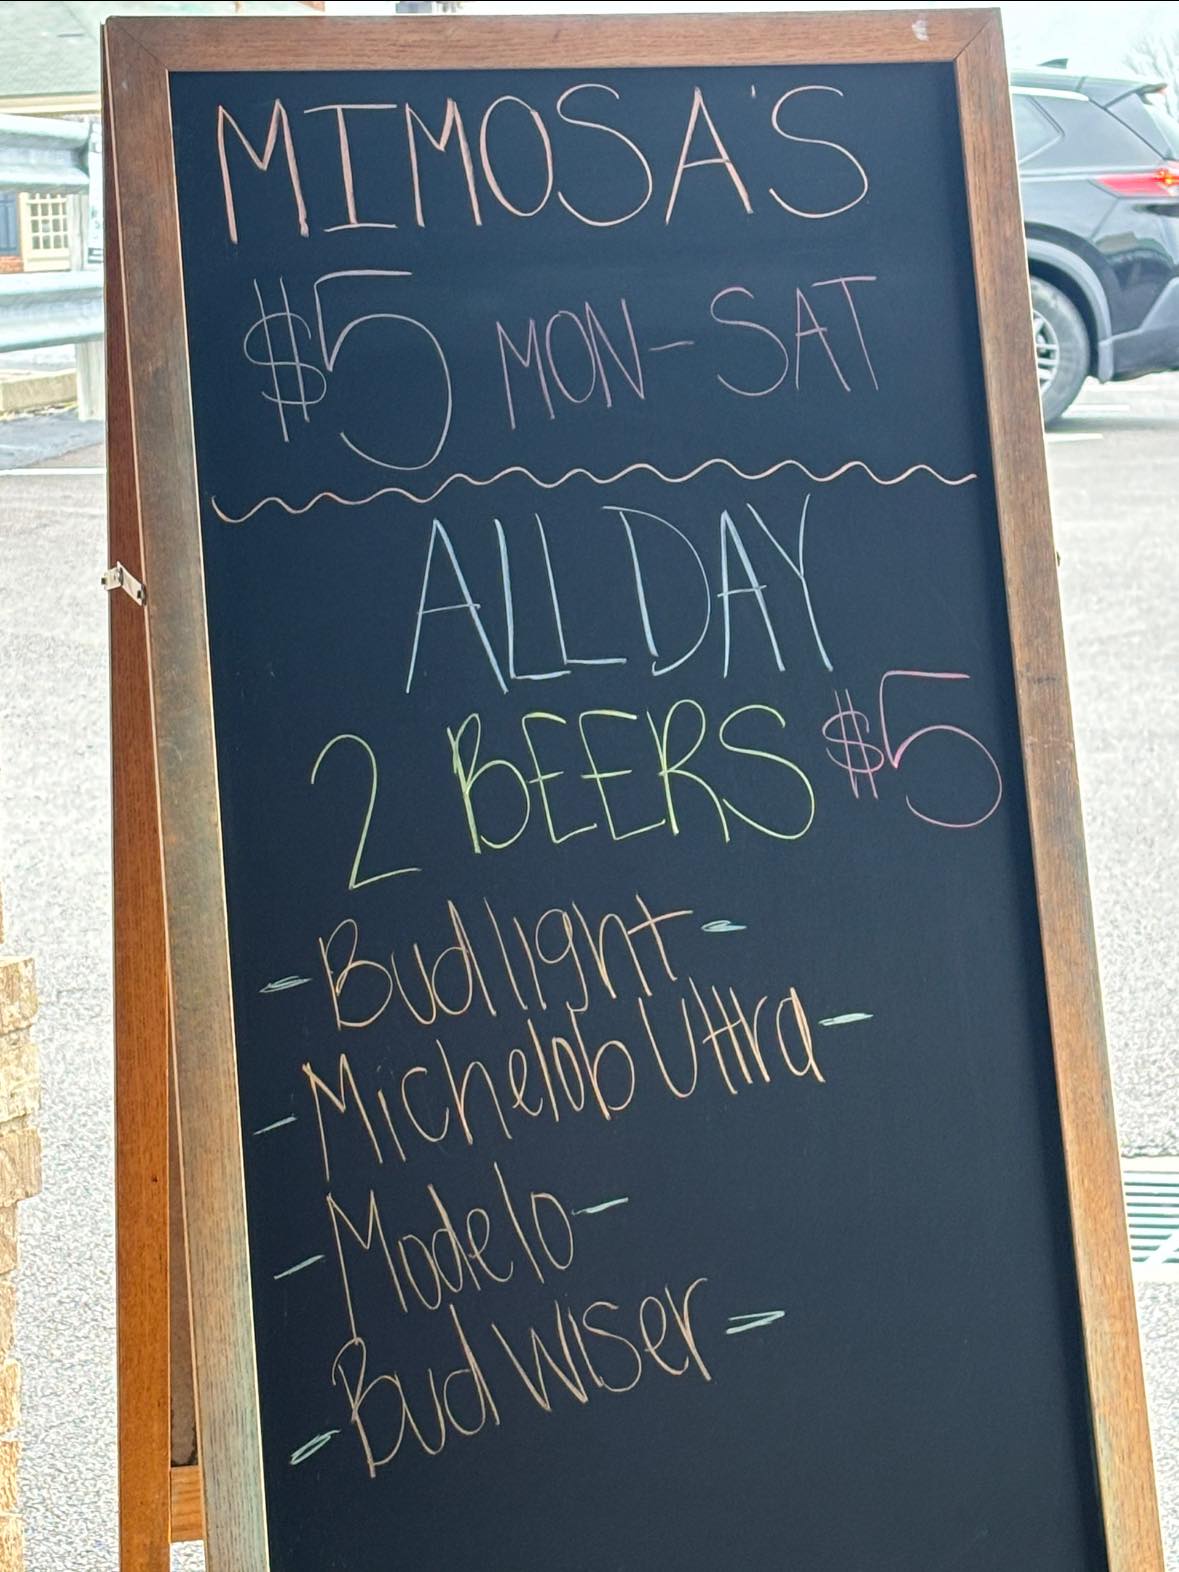 MIMOSA'S
$5 MON-SAT
ALL DAY
2 BEERS $5
- Bud light -
- Michelob Ultra -
- Modelo -
- Bud wiser -